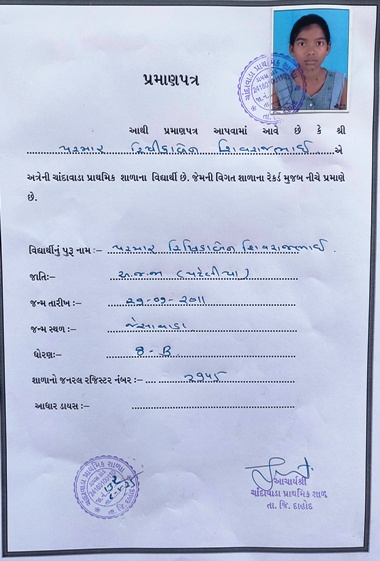 પ્રમાણપત્ર
આથી પ્રમાણપત્ર આપવામાં આવે છે કે શ્રી
પરમાર શિવરાજભાઈ એ
અત્રેની ચાંદાવાડા પ્રાથમિક શાળાના વિદ્યાર્થી છે. જેમની વિગત શાળાના રેકર્ડ મુજબ નીચે પ્રમાણે
છે.
વિદ્યાર્થીનું પુરૂ નામ :- પરમાર શિવરાજભાઈ
જાતિ:- અ.જ.જ
જન્મ તારીખ :- ૨૦૧૧
જન્મ સ્થળ :- જેસાવાડા
ધોરણ:- 8-B
શાળાનો જનરલ રજિસ્ટર નંબર :- ૨૧૫૬
આધાર ડાયસ :-
આચાર્યશ્રી
ચાંદાવાડા પ્રાથમિક શાળ
તા. જિ. દાહોદ